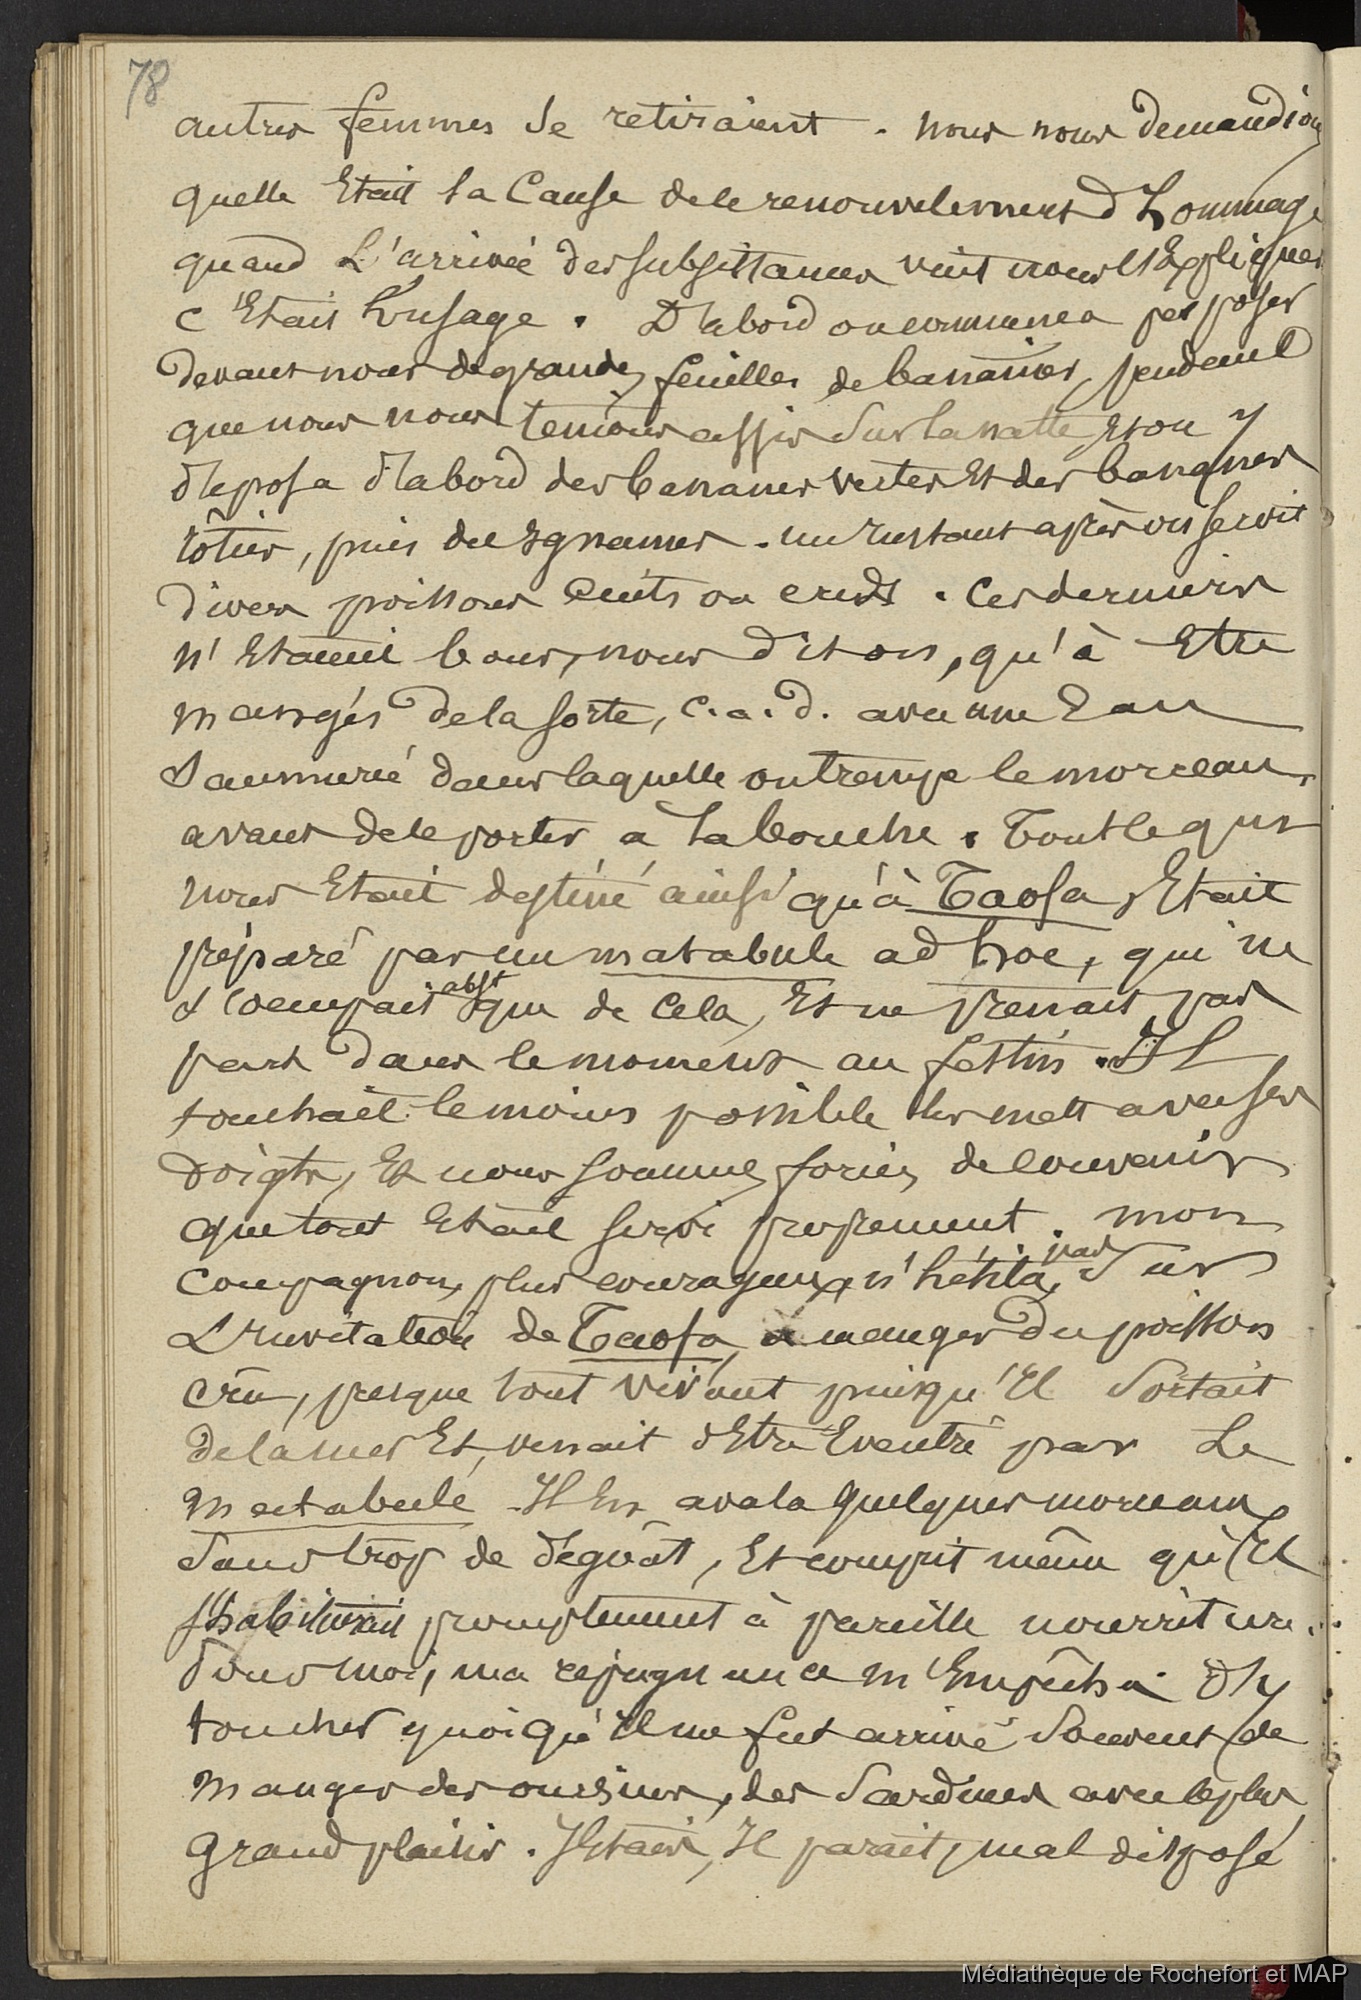 78
autres femmes se retiraient. Nous nous demandions
quelle Etait la Cause de le renouvelement d'hommage
quand L'arrivée des subsistances vint nous l'Expliquer
c'Etait l'usage. D'abord on commença par poser
devant nous de grandes feuilles de bananier, pendant
que nous nous tenions assis sur la natte Et on y
déposa d'abord des bananes vertes Et des bananes
rôties, puis des Ignames. un Instant après on servit
divers poissons cuits ou cruds. Ces derniers
n'Etaient bons, nous dit on, qu'à Etre
mangés de la sorte, c.a.d. avec une Eau
saumurée dans laquelle on trempe le morceau
avant de le porter à la bouche. Tout ce qui
nous Etait destiné ainsi qu'à Taofa, Etait
préparé par un matabule ad hoc, qui ne
s'occupait abst que de cela, Et ne prenait pas
part dans le moment au festin. Il
touchait le moins possible les mets avec ses
doigts, Et nous sommes forcés de convenir
que tout Etait servi proprement. mon
compagnon, plus courageux, n'hésita pas, sur
L'Invitation de Taofa, a manger du poisson
crû, presque tout vivant puisqu'Il sortait
de la mer Et venait d'Etre Eventré par Le
matabulé. Il En avala quelques morceaux
sans trop de dégoût, Et comprit même qu'Il
s'habituerait promptement à pareille nourriture...
Pour moi, ma répugnance m'Empêcha d'y
toucher quoiqu'Il me fut arrivé souvent de
manger des oursins, des sardines avec le plus
grand plaisir. J'Etais, Il parait, mal disposé
Médiathèque de Rochefort et MAP